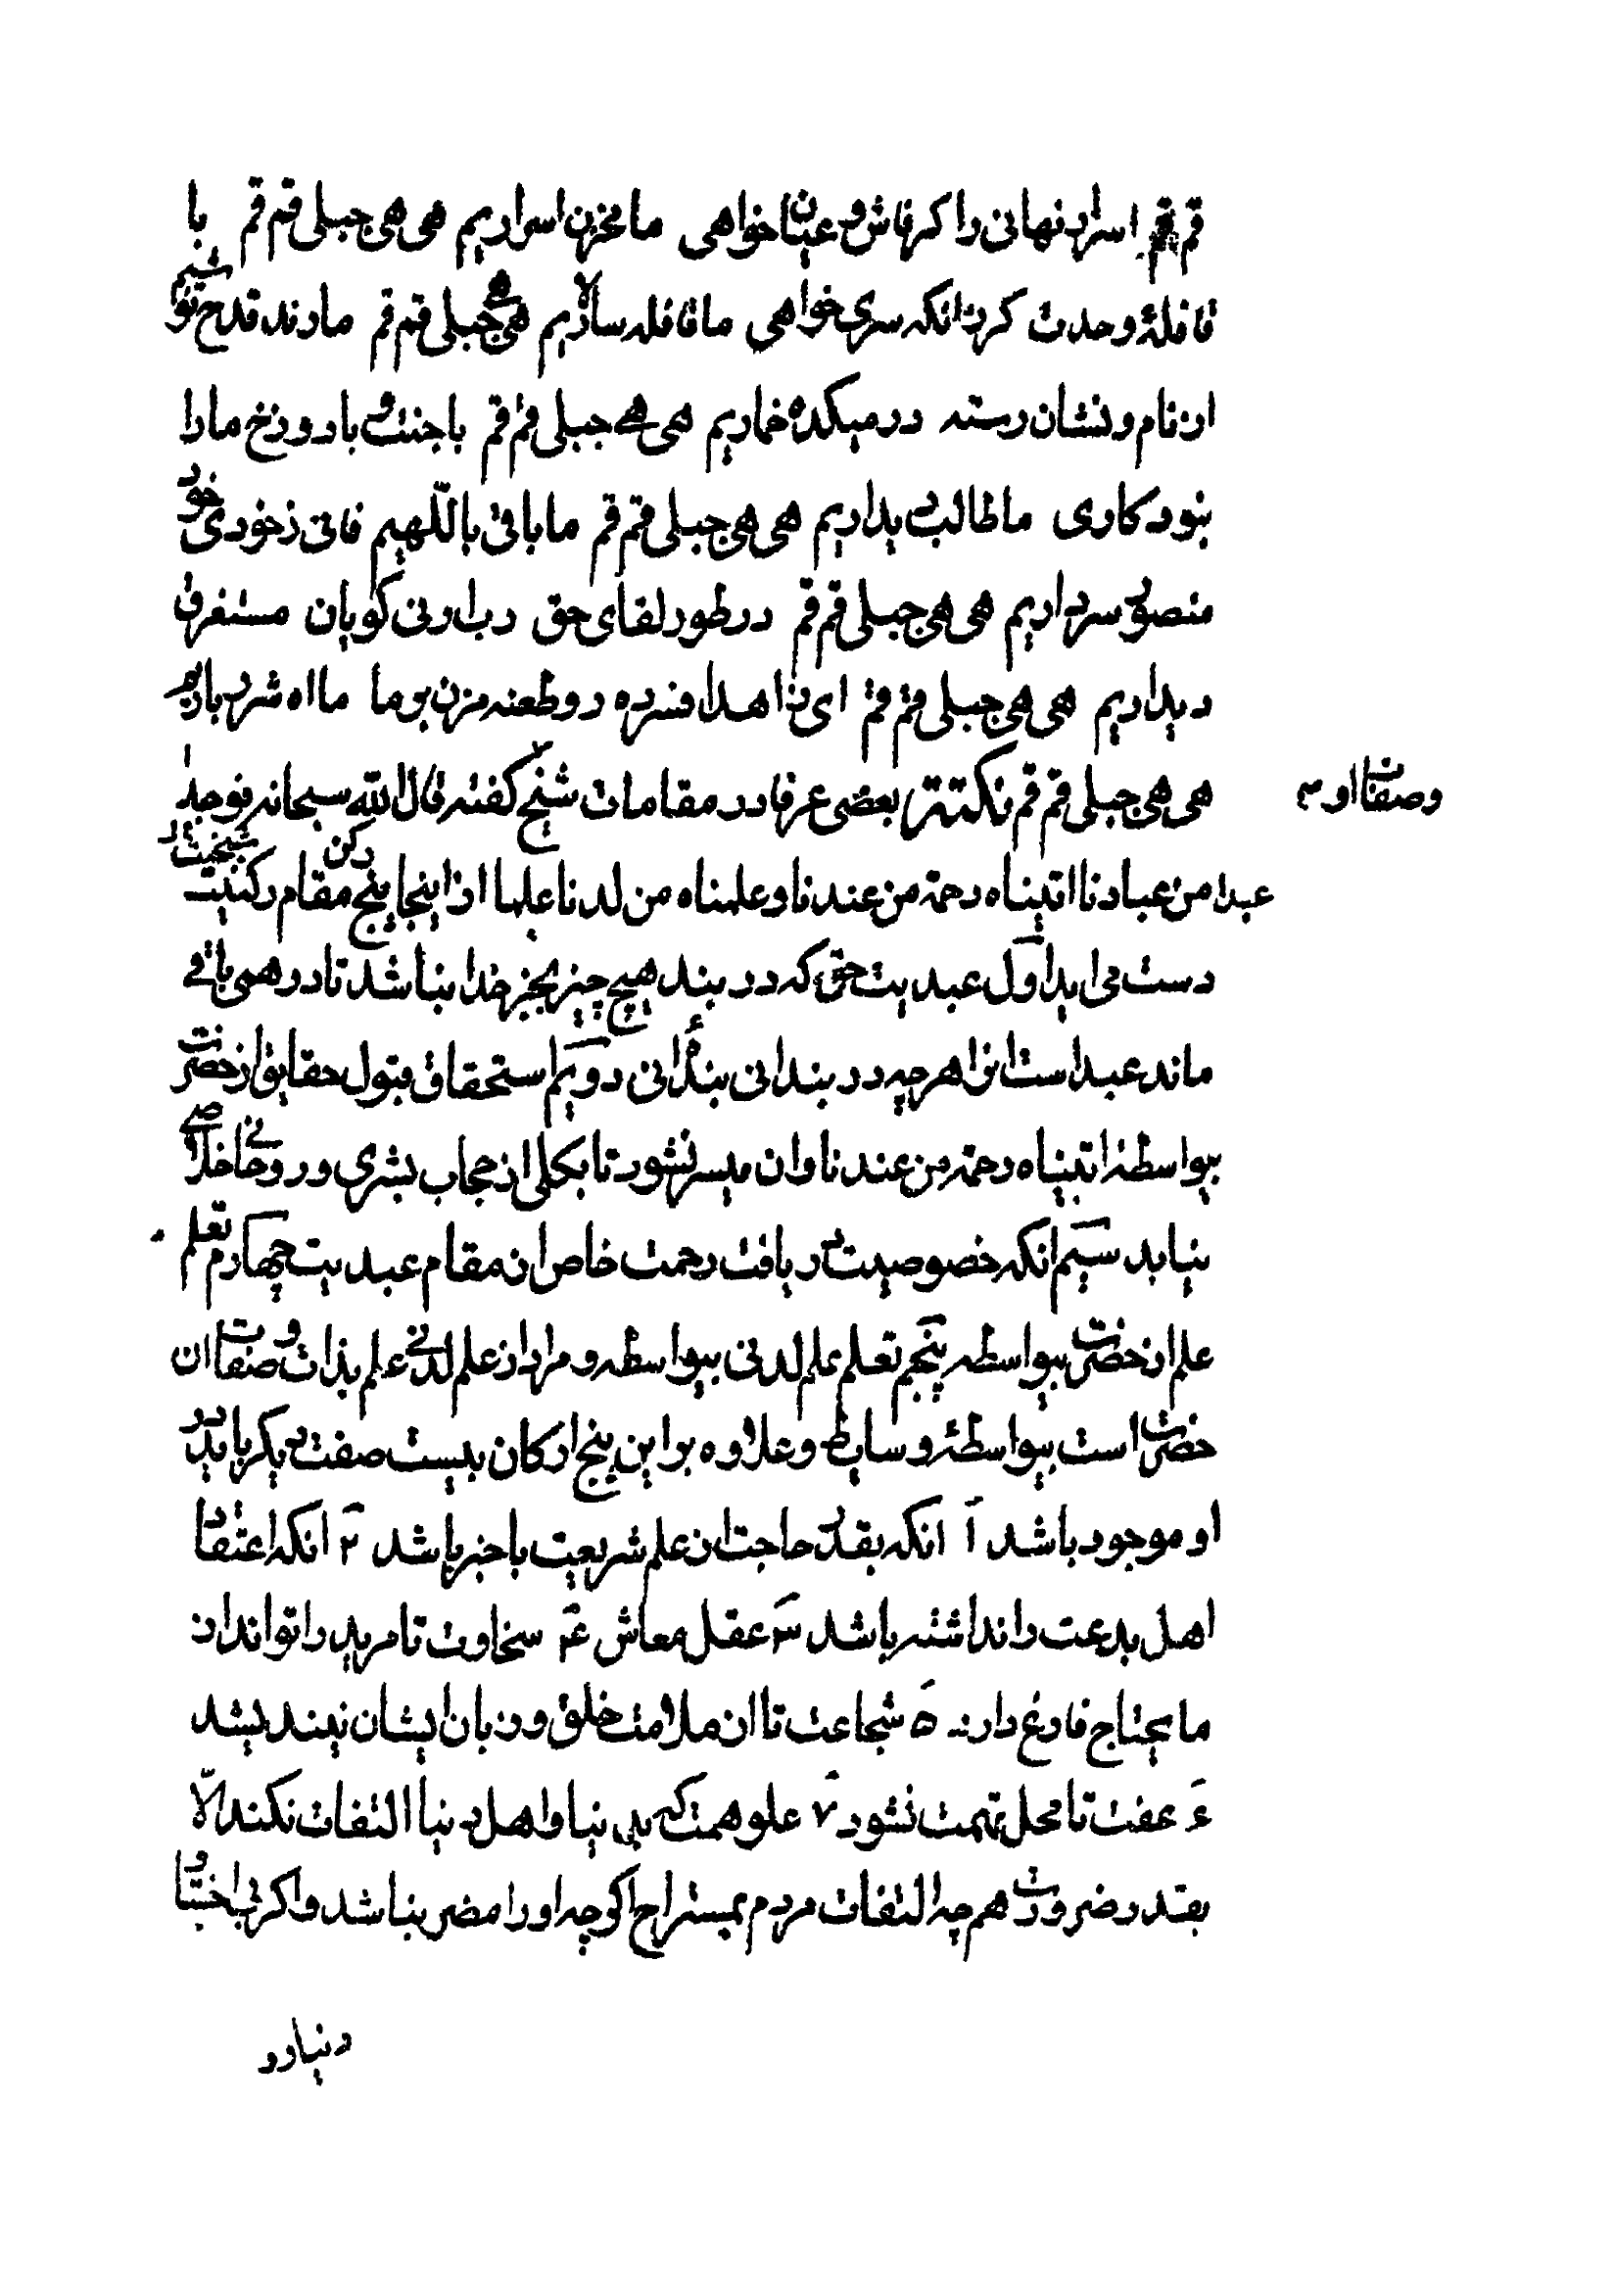 قم قم اسرار نهانی را کر فاش و عیان خواهی ما مخزن اسراریم هی هی جبلی قم قم با
قافلهٔ وحدت کر زانکه سری خواهی ما قافله سالاریم هی هی جبلی قم قم ما رند قدح نوشیم
از نام و نشان رسته در میکده خماریم هی هی جبلی قم قم با جنت و با دوزخ ما را
نبود کاری ما طالب دیداریم هی هی جبلی قم قم ما باقی باللهیم فانی ز خودی خود
منصور سر داریم هی هی جبلی قم قم در طور لقای حق رب ارنی کویان مستغرق
دیداریم هی هی جبلی قم قم ای زاهد افسرده رو طعنه مزن بر ما ما اه شرر باریم
هی هی جبلی قم قم نکتة بعضی عرفا در مقامات شیخ و صفات او کفته قال الله سبحانه فوجدا
عبدا من عبادنا اتیناه رحمة من عندنا و علمناه من لدنا علما از اینجا پنج مقام رکن رکنیت شیخیت
دست می اید اول عبدیت حق که در بند هیچ چیز بجز خدا نباشد تا در وهمی باقی
ماند عبد است انرا هر چه در بند انی بندهٔ انی دویم استحقاق قبول حقایق از حضرت
بیواسطهٔ اتیناه رحمة من عندنا و ان میسر نشود تا بکلی از حجاب بشری و روحانی خلاصی
نیابد سیم انکه خصوصیت دریافت رحمت خاص از مقام عبدیت چهارم تعلم
علم از حضرت بیواسطه پنجم تعلم علم لدنی بیواسطه و مراد از علم لدنی علم بذات و صفات ان
حضرت است بیواسطهٔ وسایط و علاوه بر این پنج ارکان بیست صفت دیکر باید در
او موجود باشد ۱ انکه بقدر حاجت از علم شریعت با خبر باشد ۲ انکه اعتقاد
اهل بدعت را نداشته باشد ۳ عقل معاش ۴ سخاوت تا مرید را تواند از
مایحتاج فارغ دارد ۵ شجاعت تا از ملامت خلق و زبان ایشان نیندیشد
۶ عفت تا محل تهمت نشود ۷ علو همت که بدنیا و اهل دنیا التفات نکند الا
بقدر ضرورت هم چه التفات مردم بمستراح اکرچه او را مضر نباشد و اکر نی اختیار
دنیا رو